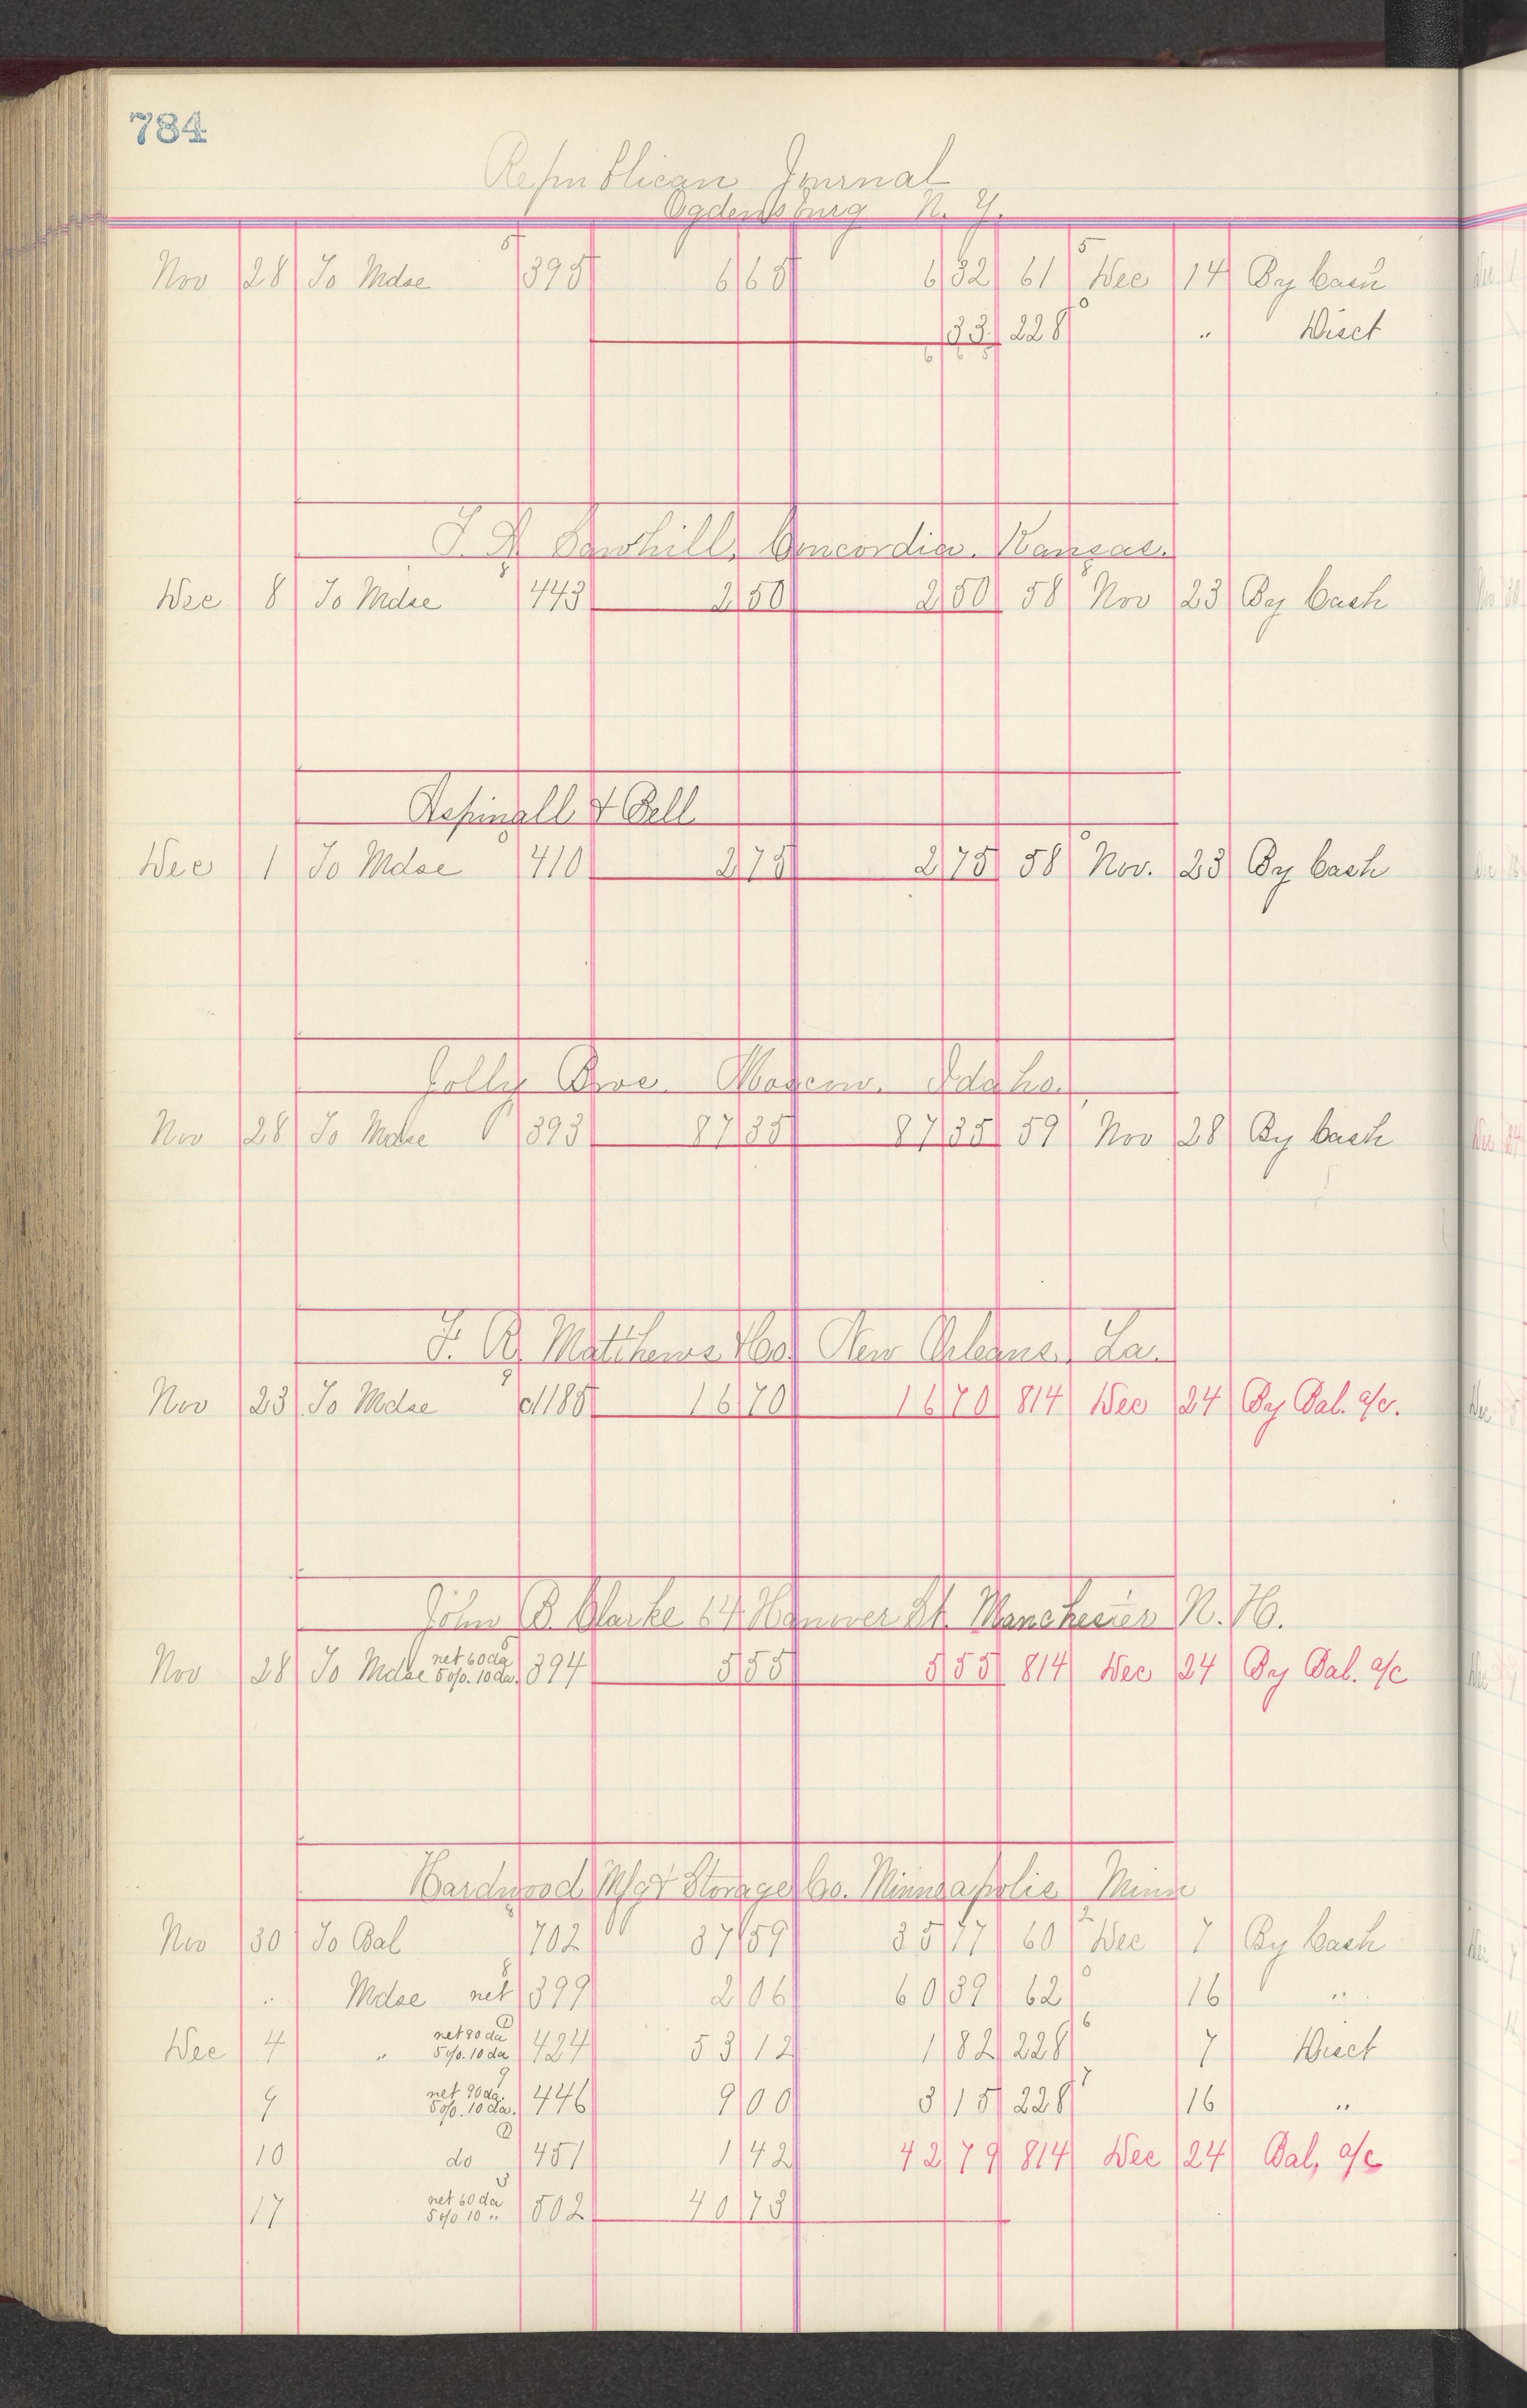 784
Republican Journal
Ogdensburg N. Y.
Nov 28 To Mdse 5 395 6 65 6 32 61 5 Dec 14 By Cash
33 228 0 " Disct
6 65
J. A. Sawhill, Concordia. Kansas.
Dec 8 To Mdse 8 443 2 50 2 50 58 8 Nov 23 By Cash
Aspinall & Bell
Dec 1 To Mdse 0 410 2 75 2 75 58 0 Nov. 23 By Cash
Jolly Bros. Moscow. Idaho.
Nov 28 To Mdse 393 87 35 87 35 59 Nov 28 By Cash
F. R. Matthews & Co. New Orleans. La.
Nov 23 To Mdse 9 d185 16 70 16 70 814 Dec 24 By Bal. a/c.
John B. Clarke 64 Hanover St. Manchester N. H.
Nov 28 To Mdse net 60 da 5%. 10 da. 394 5 55 5 55 814 Dec 24 By Bal. a/c
Hardwood Mfg & Storage Co. Minneapolis Minn
Nov 30 To Bal 702 37 59 35 77 60 2 Dec 7 By Cash
" Mdse net 8 399 2 06 60 39 62 0 16 "
Dec 4 " net 90 da 5%. 10 da 424 53 12 1 82 228 6 7 Disct
9 net 90 da. 5%. 10 da. 9 446 9 00 3 15 228 7 16 "
10 do 451 1 42 42 79 814 Dec 24 Bal, a/c
17 net 60 da 5% 10 " 3 502 40 73